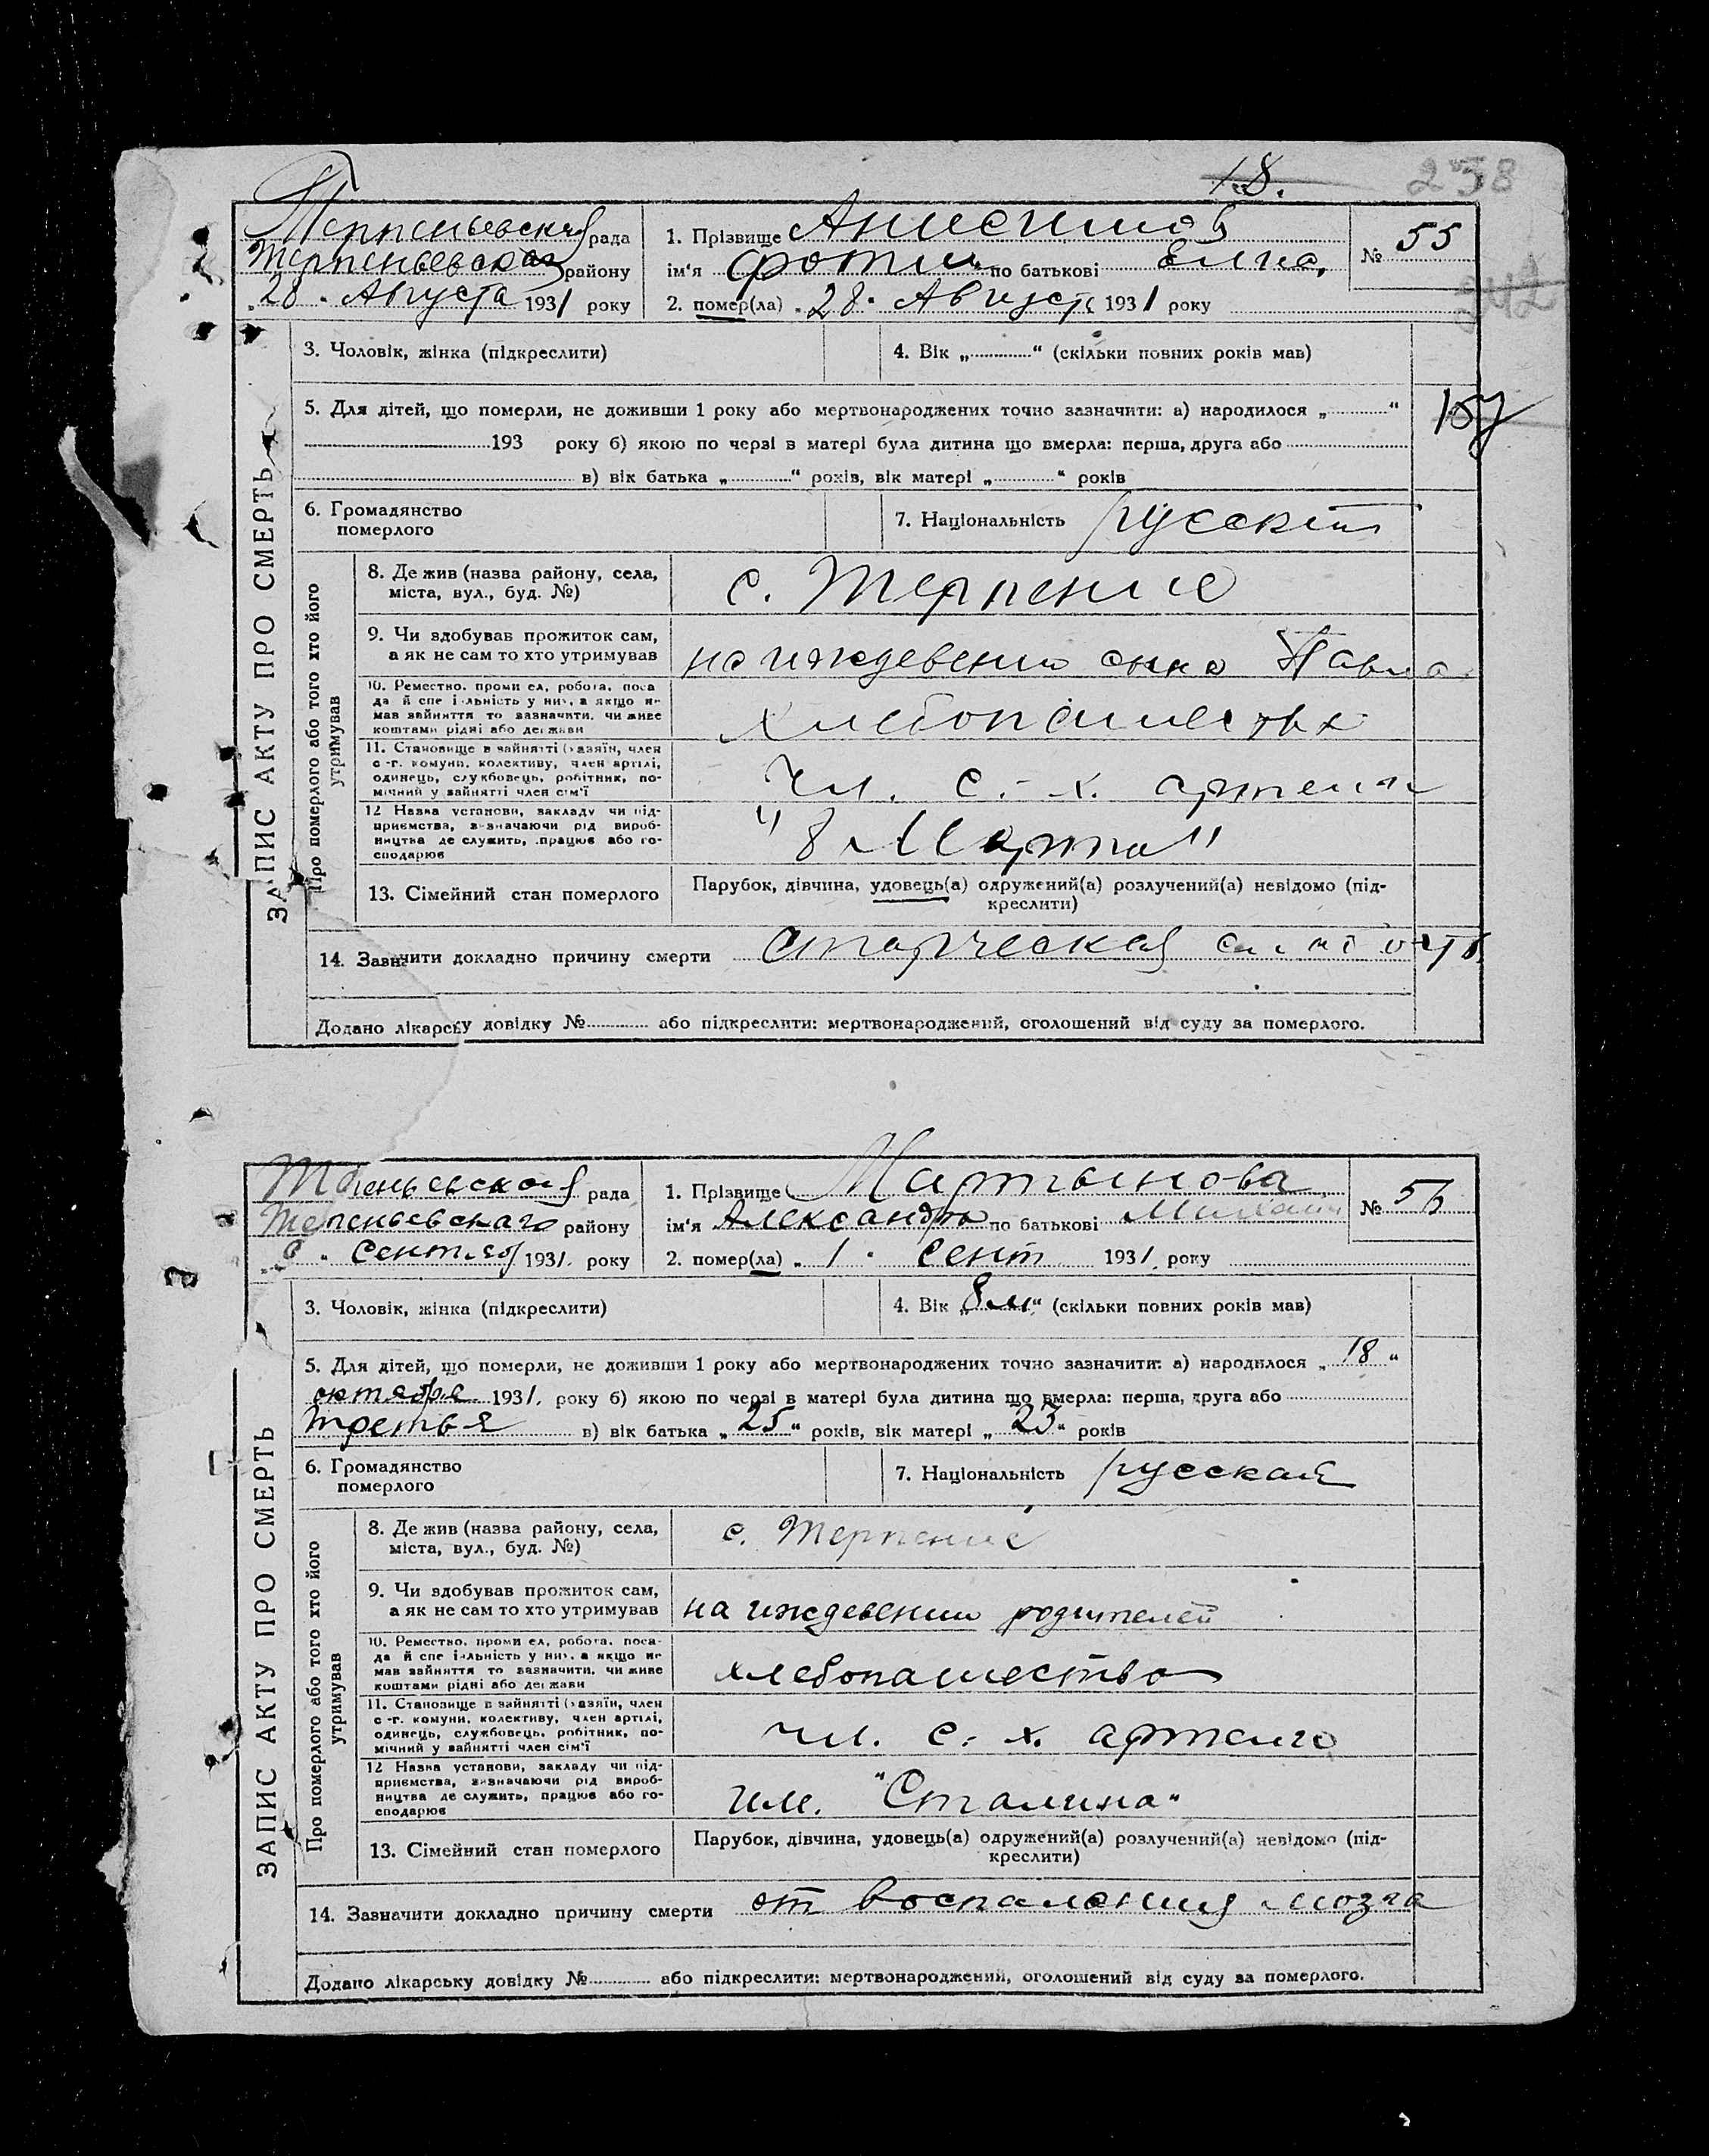 18.
258
Терпеньевская рада
1. Прізвище Анисимов
№ 55
Терпеньевская району
ім'я Фоти по батькові
242
„28" Августа 1931 року
2. помер(ла) „28" Август 1931 року
3. Чоловік, жінка (підкреслити)
4. Вік „ " (скільки повних років мав)
5. Для дітей, що померли, не доживши 1 року або мертвонароджених точно зазначити: а) народилося „ "
193 року б) якою по черзі в матері була дитина що вмерла: перша, друга або
в) вік батька „ " років, вік матері „ " років
6. Громадянство
померлого
7. Національність русский
ЗАПИС АКТУ ПРО СМЕРТЬ
Про померлого або того хто його
утримував
8. Де жив (назва району, села,
міста, вул., буд. №)
с. Терпение
9. Чи здобував прожиток сам,
а як не сам то хто утримував
на иждевении сына Павла
10. Ремество, промисел, робота, поса
да й спеціяльність у них, а якщо не
мав зайняття то зазначити, чи живе
коштами рідні або держави
хлебопашество
11. Становище в зайнятті (хазяїн, член
с.-г. комуни, колективу, член артілі,
одинець, службовець, робітник, по-
мічний у зайнятті член сім'ї
чл. с.-х. артели
12 Назва установи, закладу чи під-
приємства, визначаючи рід вироб-
ництва де служить, працює або го-
сподарює
"8 Марта"
13. Сімейний стан померлого
Парубок, дівчина, удовець(а) одружений(а) розлучений(а) невідомо (під-
креслити)
14. Зазначити докладно причину смерти старческая слабость
Додано лікарську довідку № або підкреслити: мертвонароджений, оголошений від суду за померлого.
рада
1. Прізвище Мартынова
№ 56
Терпеньевскаго району
ім'я Александра по батькові Михаил
сентяб 1931. року
2. помер(ла) „ 1 " сент 1931. року
3. Чоловік, жінка (підкреслити)
4. Вік „8 м" (скільки повних років мав)
5. Для дітей, що померли, не доживши 1 року або мертвонароджених точно зазначити: а) народилося „ 18 "
октября 1931. року б) якою по черзі в матері була дитина що вмерла: перша, друга або
третья в) вік батька „ 25 " років, вік матері „ 23 " років
6. Громадянство
померлого
7. Національність русская
ЗАПИС АКТУ ПРО СМЕРТЬ
Про померлого або того хто його
утримував
8. Де жив (назва району, села,
міста, вул., буд. №)
с. Терпение
9. Чи здобував прожиток сам,
а як не сам то хто утримував
на иждевении родителей
10. Ремество, промисел, робота, поса-
да й спеціяльність у них, а якщо не
мав зайняття то зазначити, чи живе
коштами рідні або держави
хлебопашество
11. Становище в зайнятті (хазяїн, член
с.-г. комуни, колективу, член артілі,
одинець, службовець, робітник, по-
мічний у зайнятті член сім'ї
чл. с.-х. артели
12 Назва установи, закладу чи під-
приємства, визначаючи рід вироб-
ництва де служить, працює або го-
сподарює
им. "Сталина"
13. Сімейний стан померлого
Парубок, дівчина, удовець(а) одружений(а) розлучений(а) невідомо (під-
креслити)
14. Зазначити докладно причину смерти от воспаления мозга
Додано лікарську довідку № або підкреслити: мертвонароджений, оголошений від суду за померлого.